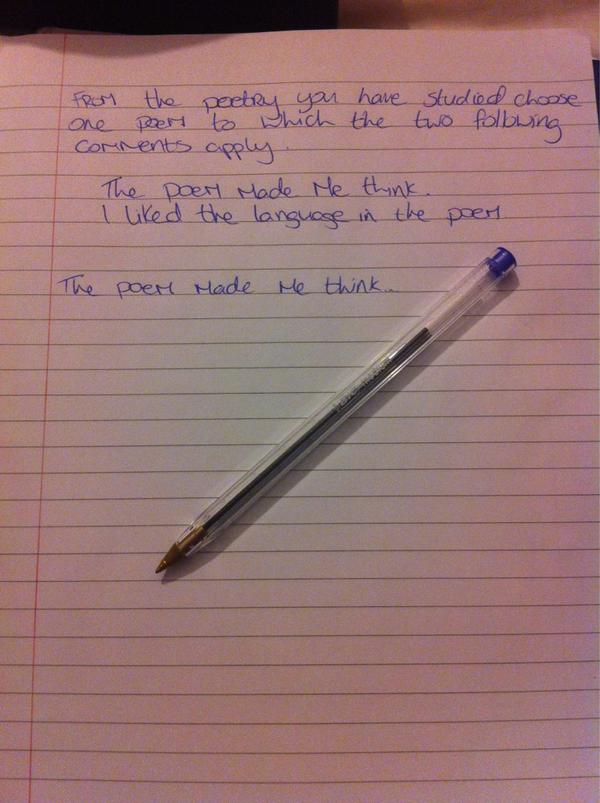 From the poetry you have studied choose
one poem to which the two following
comments apply.
The poem made me think.
I liked the language in the poem
The poem made me think...